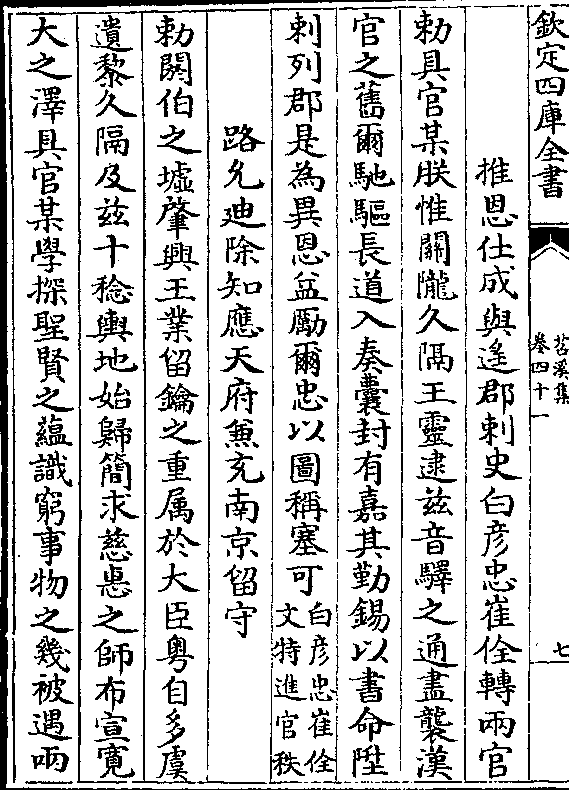 欽定四庫全書
苕溪集
卷四十一
七
推恩仕成與遙郡刺史白彦忠崔佺轉兩官
勅具官某朕惟關隴久隔王靈逮兹音驛之通盡襲漢
官之舊爾馳驅長道入奏囊封有嘉其勤錫以書命陞
刺列郡是為異恩益勵爾忠以圖稱塞可
白彦忠崔佺
文特進官秩
路允迪除知應天府兼充南京留守
勅閼伯之墟肇興王業留鑰之重属於大臣粤自多虞
遺黎久隔及兹十稔輿地始歸簡求慈惠之師布宣寛
大之澤具官某學探聖賢之藴識窮事物之幾被遇兩